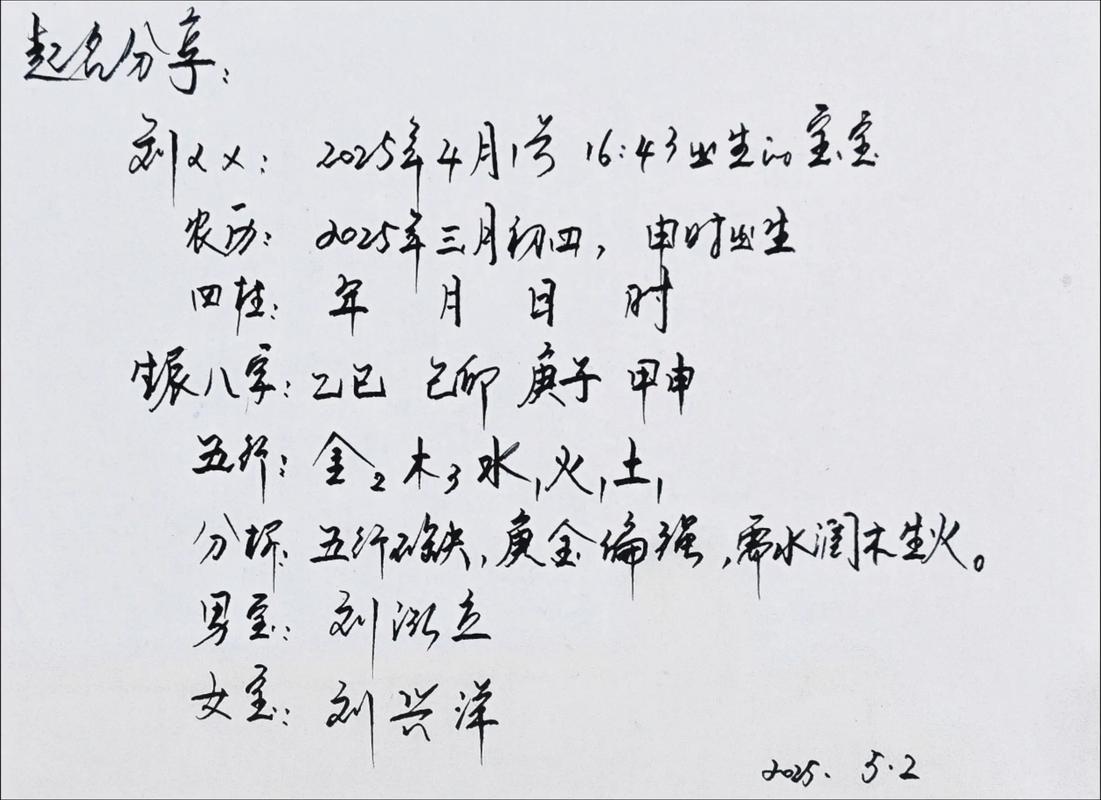 起名分享:
刘××: 2025年4月1号 16:43出生的宝宝
农历: 2025年三月初四, 申时出生
四柱: 年 月 日 时
生辰八字: 乙巳 己卯 庚子 甲申
五行: 金2木3水1火1土1
分析: 五行不缺, 庚金偏强, 需水润木生火。
男宝: 刘泓立
女宝: 刘兴洋
2025. 5.2